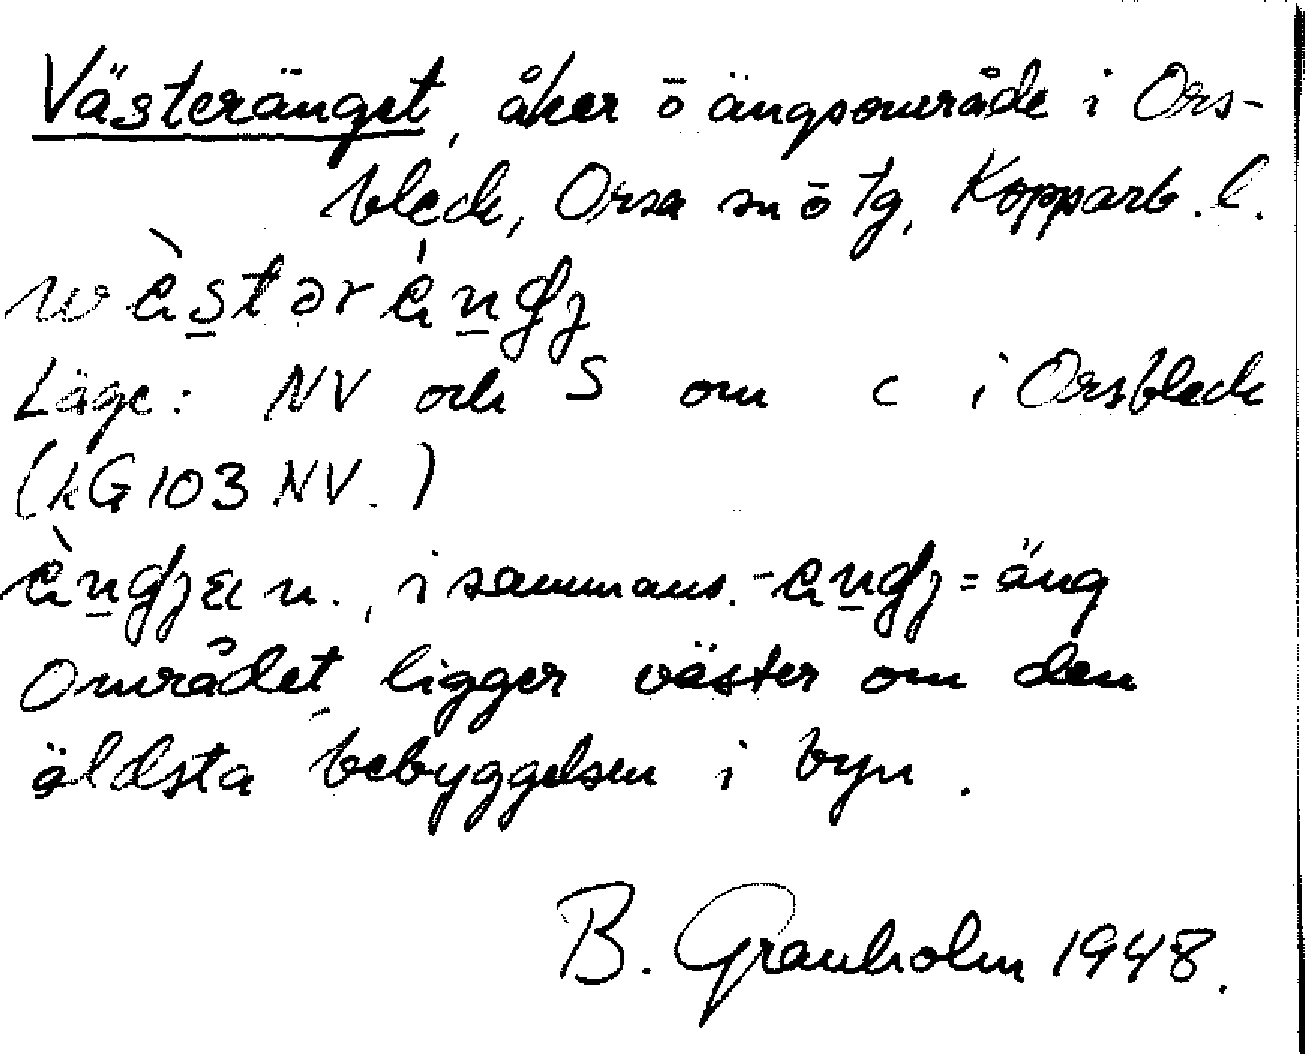 Västeränget, åker o ängsområde i Ors-
bleck, Orsa sn o tg, Kopparb. l.
Läge: NV och S om c i Orsbleck
(kG 103 NV.)
n., i sammans. = äng
Området ligger väster om den
äldsta bebyggelsen i byn.
B. Granholm 1948.